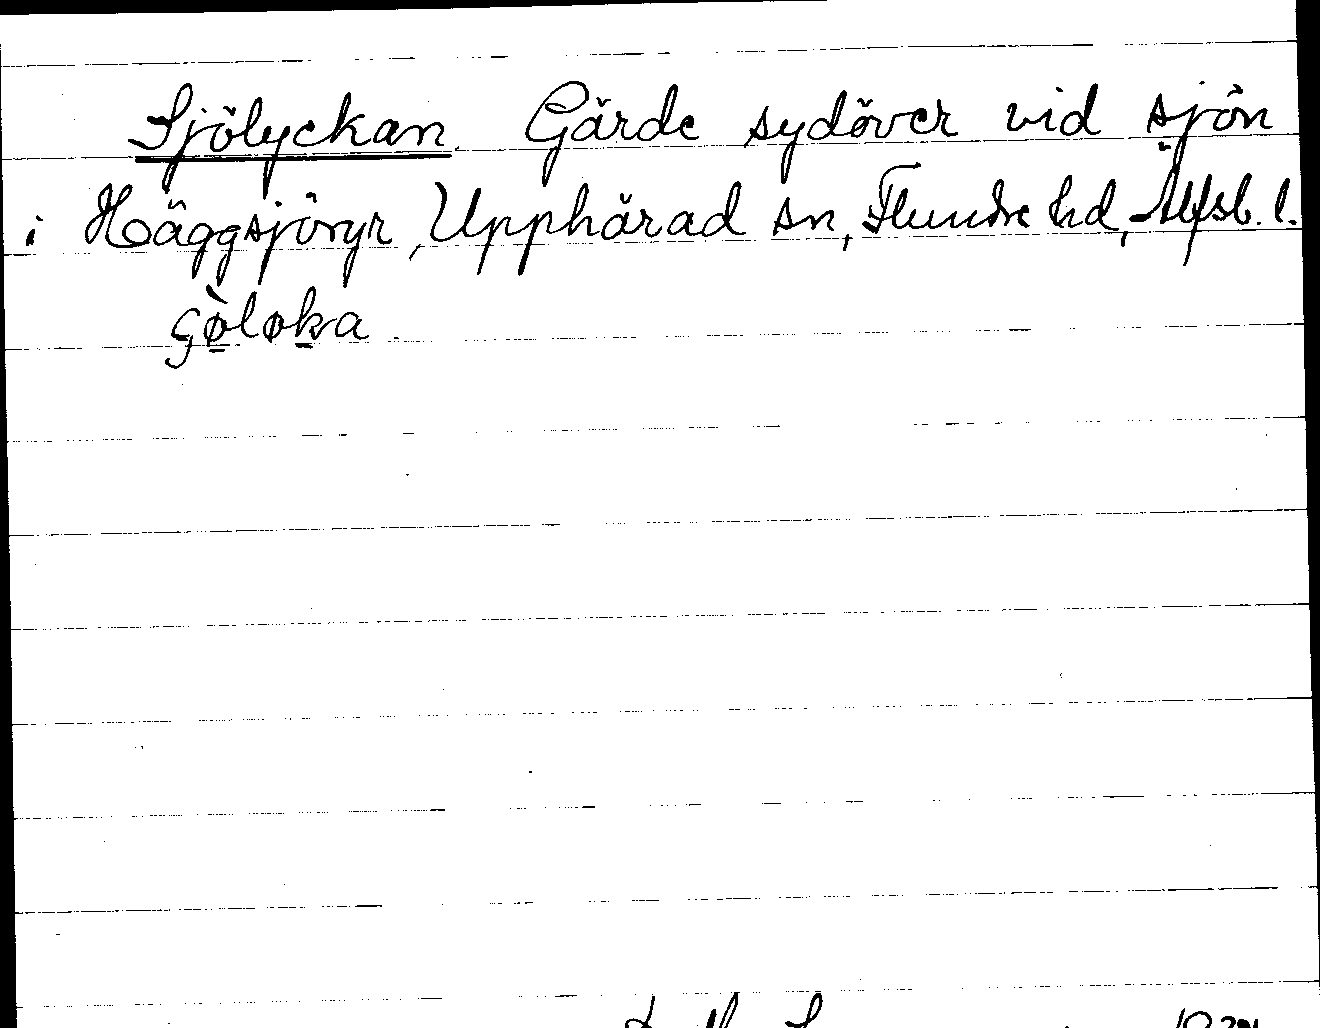 Sjölyckan. Gärde sydöver vid sjön
i Häggsjöryr, Upphärad sn, Flundre hd, Älfsb. l.